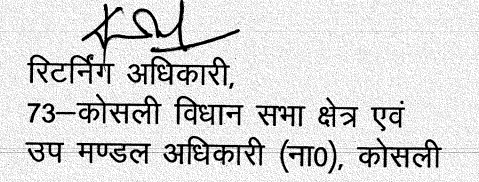 रिटर्निंग अधिकारी,
73–कोसली विधान सभा क्षेत्र एवं
उप मण्डल अधिकारी (ना0), कोसली